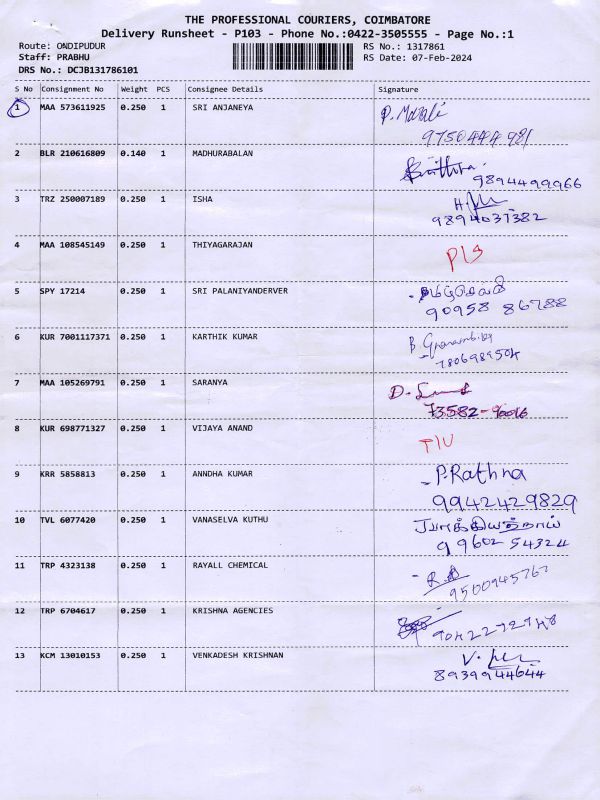 THE PROFESSIONAL COURIERS, COIMBATORE
Delivery Runsheet - P103 - Phone No.:0422-3505555 - Page No.:1
Route: ONDIPUDUR RS No.: 1317861
Staff: PRABHU RS Date: 07-Feb-2024
DRS No.: DCJB131786101
S No Consignment No Weight PCS Consignee Details Signature
1 MAA 573611925 0.250 1 SRI ANJANEYA P. Murali
9750444981
2 BLR 210616809 0.140 1 MADHURABALAN
9894499966
3 TRZ 250007189 0.250 1 ISHA
9894037382
4 MAA 108545149 0.250 1 THIYAGARAJAN P/S
5 SPY 17214 0.250 1 SRI PALANIYANDERVER
90958 86788
6 KUR 7001117371 0.250 1 KARTHIK KUMAR
7806989504
7 MAA 105269791 0.250 1 SARANYA
73582-90016
8 KUR 698771327 0.250 1 VIJAYA ANAND
9 KRR 5858813 0.250 1 ANNDHA KUMAR P.Rathna
9942429829
10 TVL 6077420 0.250 1 VANASELVA KUTHU
99602 54324
11 TRP 4323138 0.250 1 RAYALL CHEMICAL
9500945767
12 TRP 6704617 0.250 1 KRISHNA AGENCIES
13 KCM 13010153 0.250 1 VENKADESH KRISHNAN
8939944644